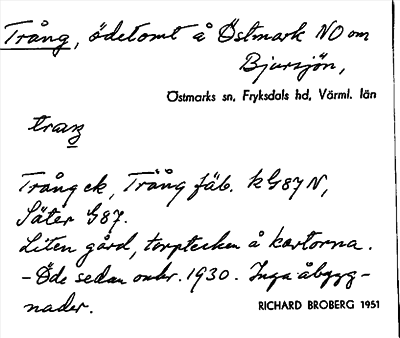 Trång, ödetomt å Östmark NO om
Bjursjön,
Östmarks sn, Fryksdals hd, Värml. län
Trång ek, Trång fäb. k G87 N,
Säter G87.
Liten gård, torptecken å kartorna.
- Öde sedan omkr. 1930. Inga åbygg-
nader.
RICHARD BROBERG 1951